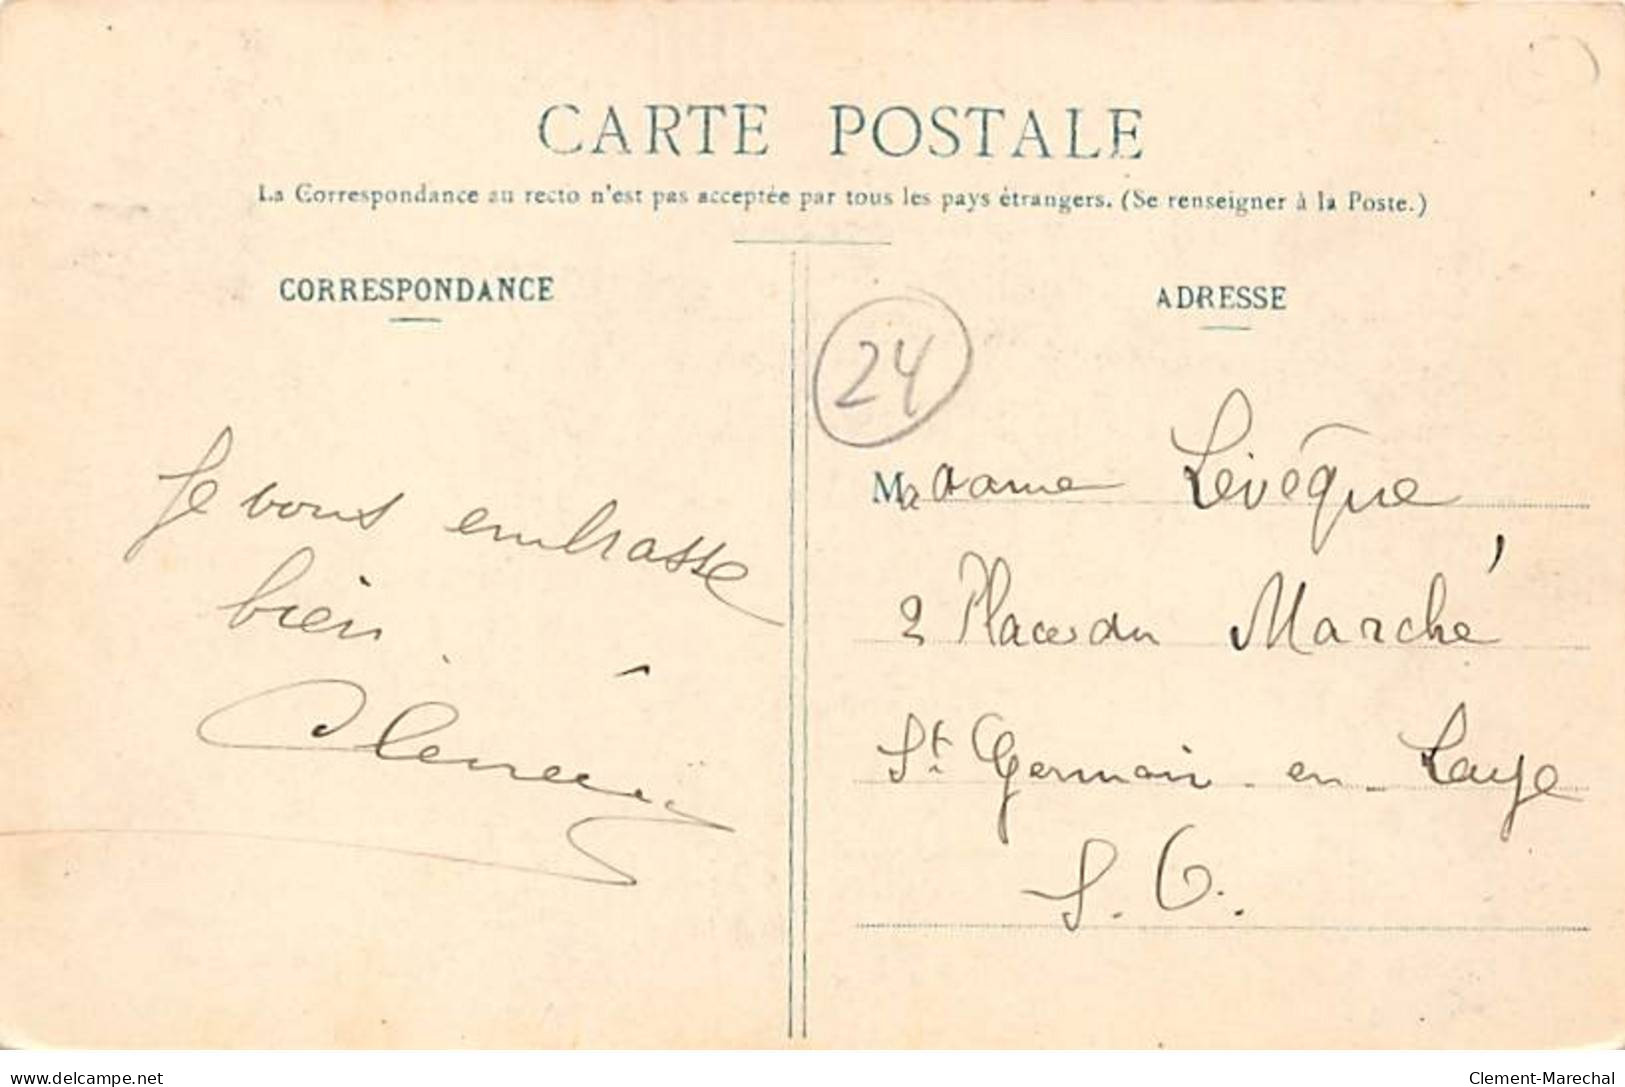 CARTE POSTALE
La Correspondance au recto n'est pas acceptée par tous les pays étrangers. (Se renseigner à la Poste.)
CORRESPONDANCE
Je vous embrasse
bien
ADRESSE
24
Madame Levêque
2 Place du Marché
St Germain en Laye
S. O.
www.delcampe.net
Clement-Marechal